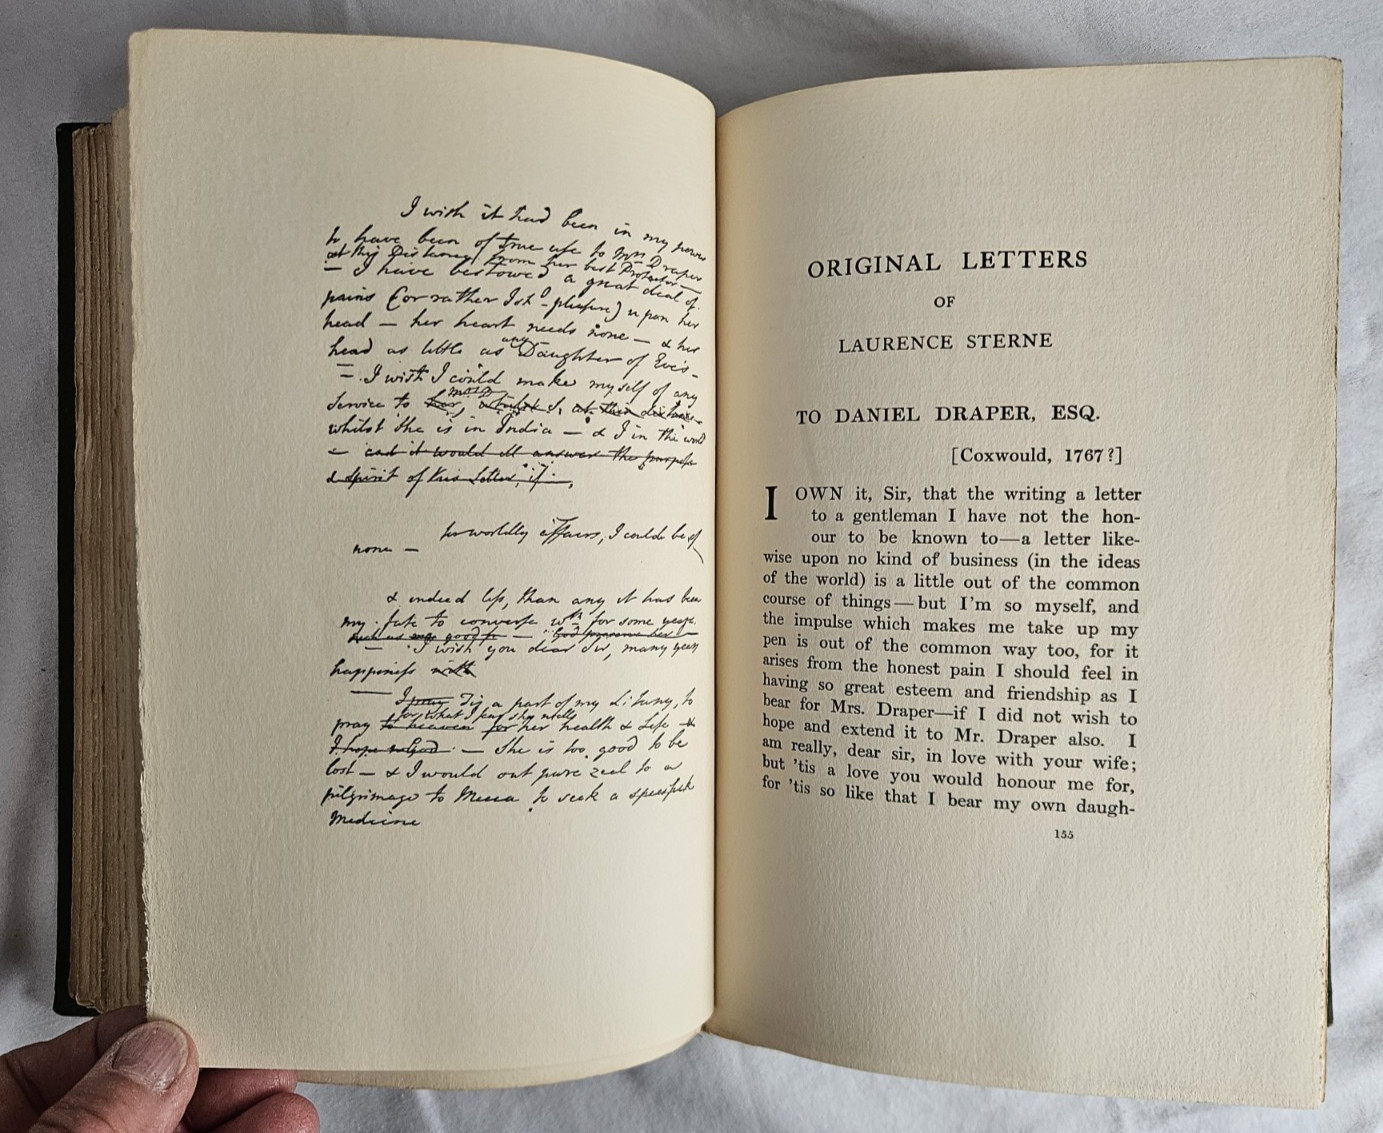 I wish it had been in my power
to have been of true use to Mrs Draper
at this Distance from her best Protector —
— I have bestowed a great deal of
pains (or rather I shd pleasure) upon her
head — her heart needs none — & her
head as little as any Daughter of Eve's —
— I wish I could make myself of any
Service to her, at this distance
whilst she is in India — & I in the world
— and it would ill answer the purpose
& spirit of this Letter, if
for worldly affairs, I could be of
none —
& indeed less, than any it has been
my fate to converse wth for some years.
— God preserve her! —
— I wish you dear Sir, many years
happiness with
— I pray Tis a part of my Litany, to
pray to heaven for her health & Life —
I hope to God — She is too good to be
lost — & I would out pure zeal to a
pilgrimage to Mecca to seek a
Medicine
ORIGINAL LETTERS
OF
LAURENCE STERNE
TO DANIEL DRAPER, ESQ.
[Coxwould, 1767?]
I OWN it, Sir, that the writing a letter
to a gentleman I have not the hon-
our to be known to—a letter like-
wise upon no kind of business (in the ideas
of the world) is a little out of the common
course of things—but I'm so myself, and
the impulse which makes me take up my
pen is out of the common way too, for it
arises from the honest pain I should feel in
having so great esteem and friendship as I
bear for Mrs. Draper—if I did not wish to
hope and extend it to Mr. Draper also. I
am really, dear sir, in love with your wife;
but 'tis a love you would honour me for,
for 'tis so like that I bear my own daugh-
155